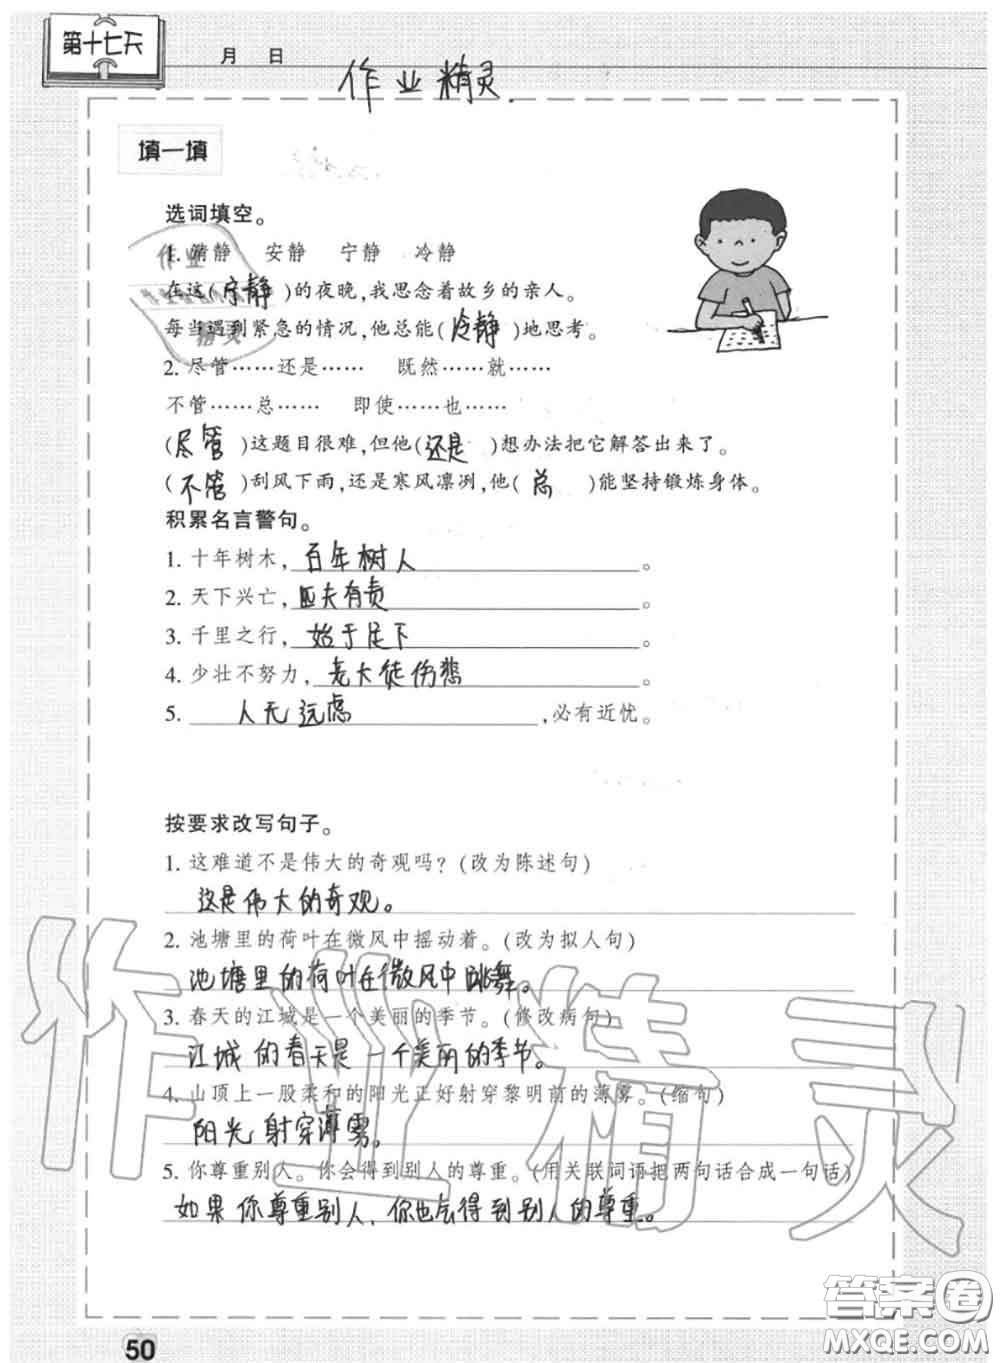 第十七天
月 日
作业精灵
填一填
选词填空。
1. 清静 安静 宁静 冷静
在这(宁静)的夜晚,我思念着故乡的亲人。
每当遇到紧急的情况,他总能(冷静)地思考。
2. 尽管……还是…… 既然……就……
不管……总…… 即使……也……
(尽管)这题目很难,但他(还是)想办法把它解答出来了。
(不管)刮风下雨,还是寒风凛冽,他(总)能坚持锻炼身体。
积累名言警句。
1. 十年树木,百年树人。
2. 天下兴亡,匹夫有责。
3. 千里之行,始于足下。
4. 少壮不努力,老大徒伤悲。
5. 人无远虑,必有近忧。
按要求改写句子。
1. 这难道不是伟大的奇观吗?(改为陈述句)
这是伟大的奇观。
2. 池塘里的荷叶在微风中摇动着。(改为拟人句)
池塘里的荷叶在微风中跳舞。
3. 春天的江城是一个美丽的季节。(修改病句)
江城的春天是一个美丽的季节。
4. 山顶上一股柔和的阳光正好射穿黎明前的薄雾。(缩句)
阳光射穿薄雾。
5. 你尊重别人。你会得到别人的尊重。(用关联词语把两句话合成一句话)
如果你尊重别人,你也会得到别人的尊重。
作业精灵
50
答案卷
MXQE.COM